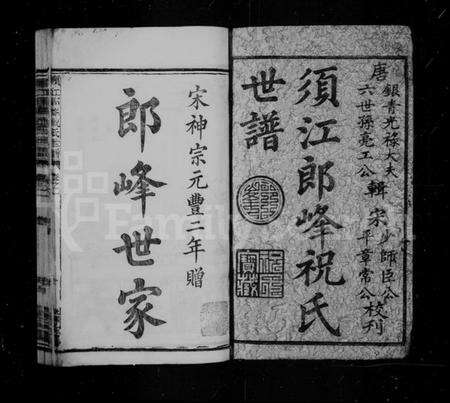 唐 銀青光祿大夫
六世孫亮工公 輯
宋 少師臣公
平章常公 校刊
須江郎峰祝氏
世譜
宋神宗元豐二年贈
郎峰世家
FamilySearch